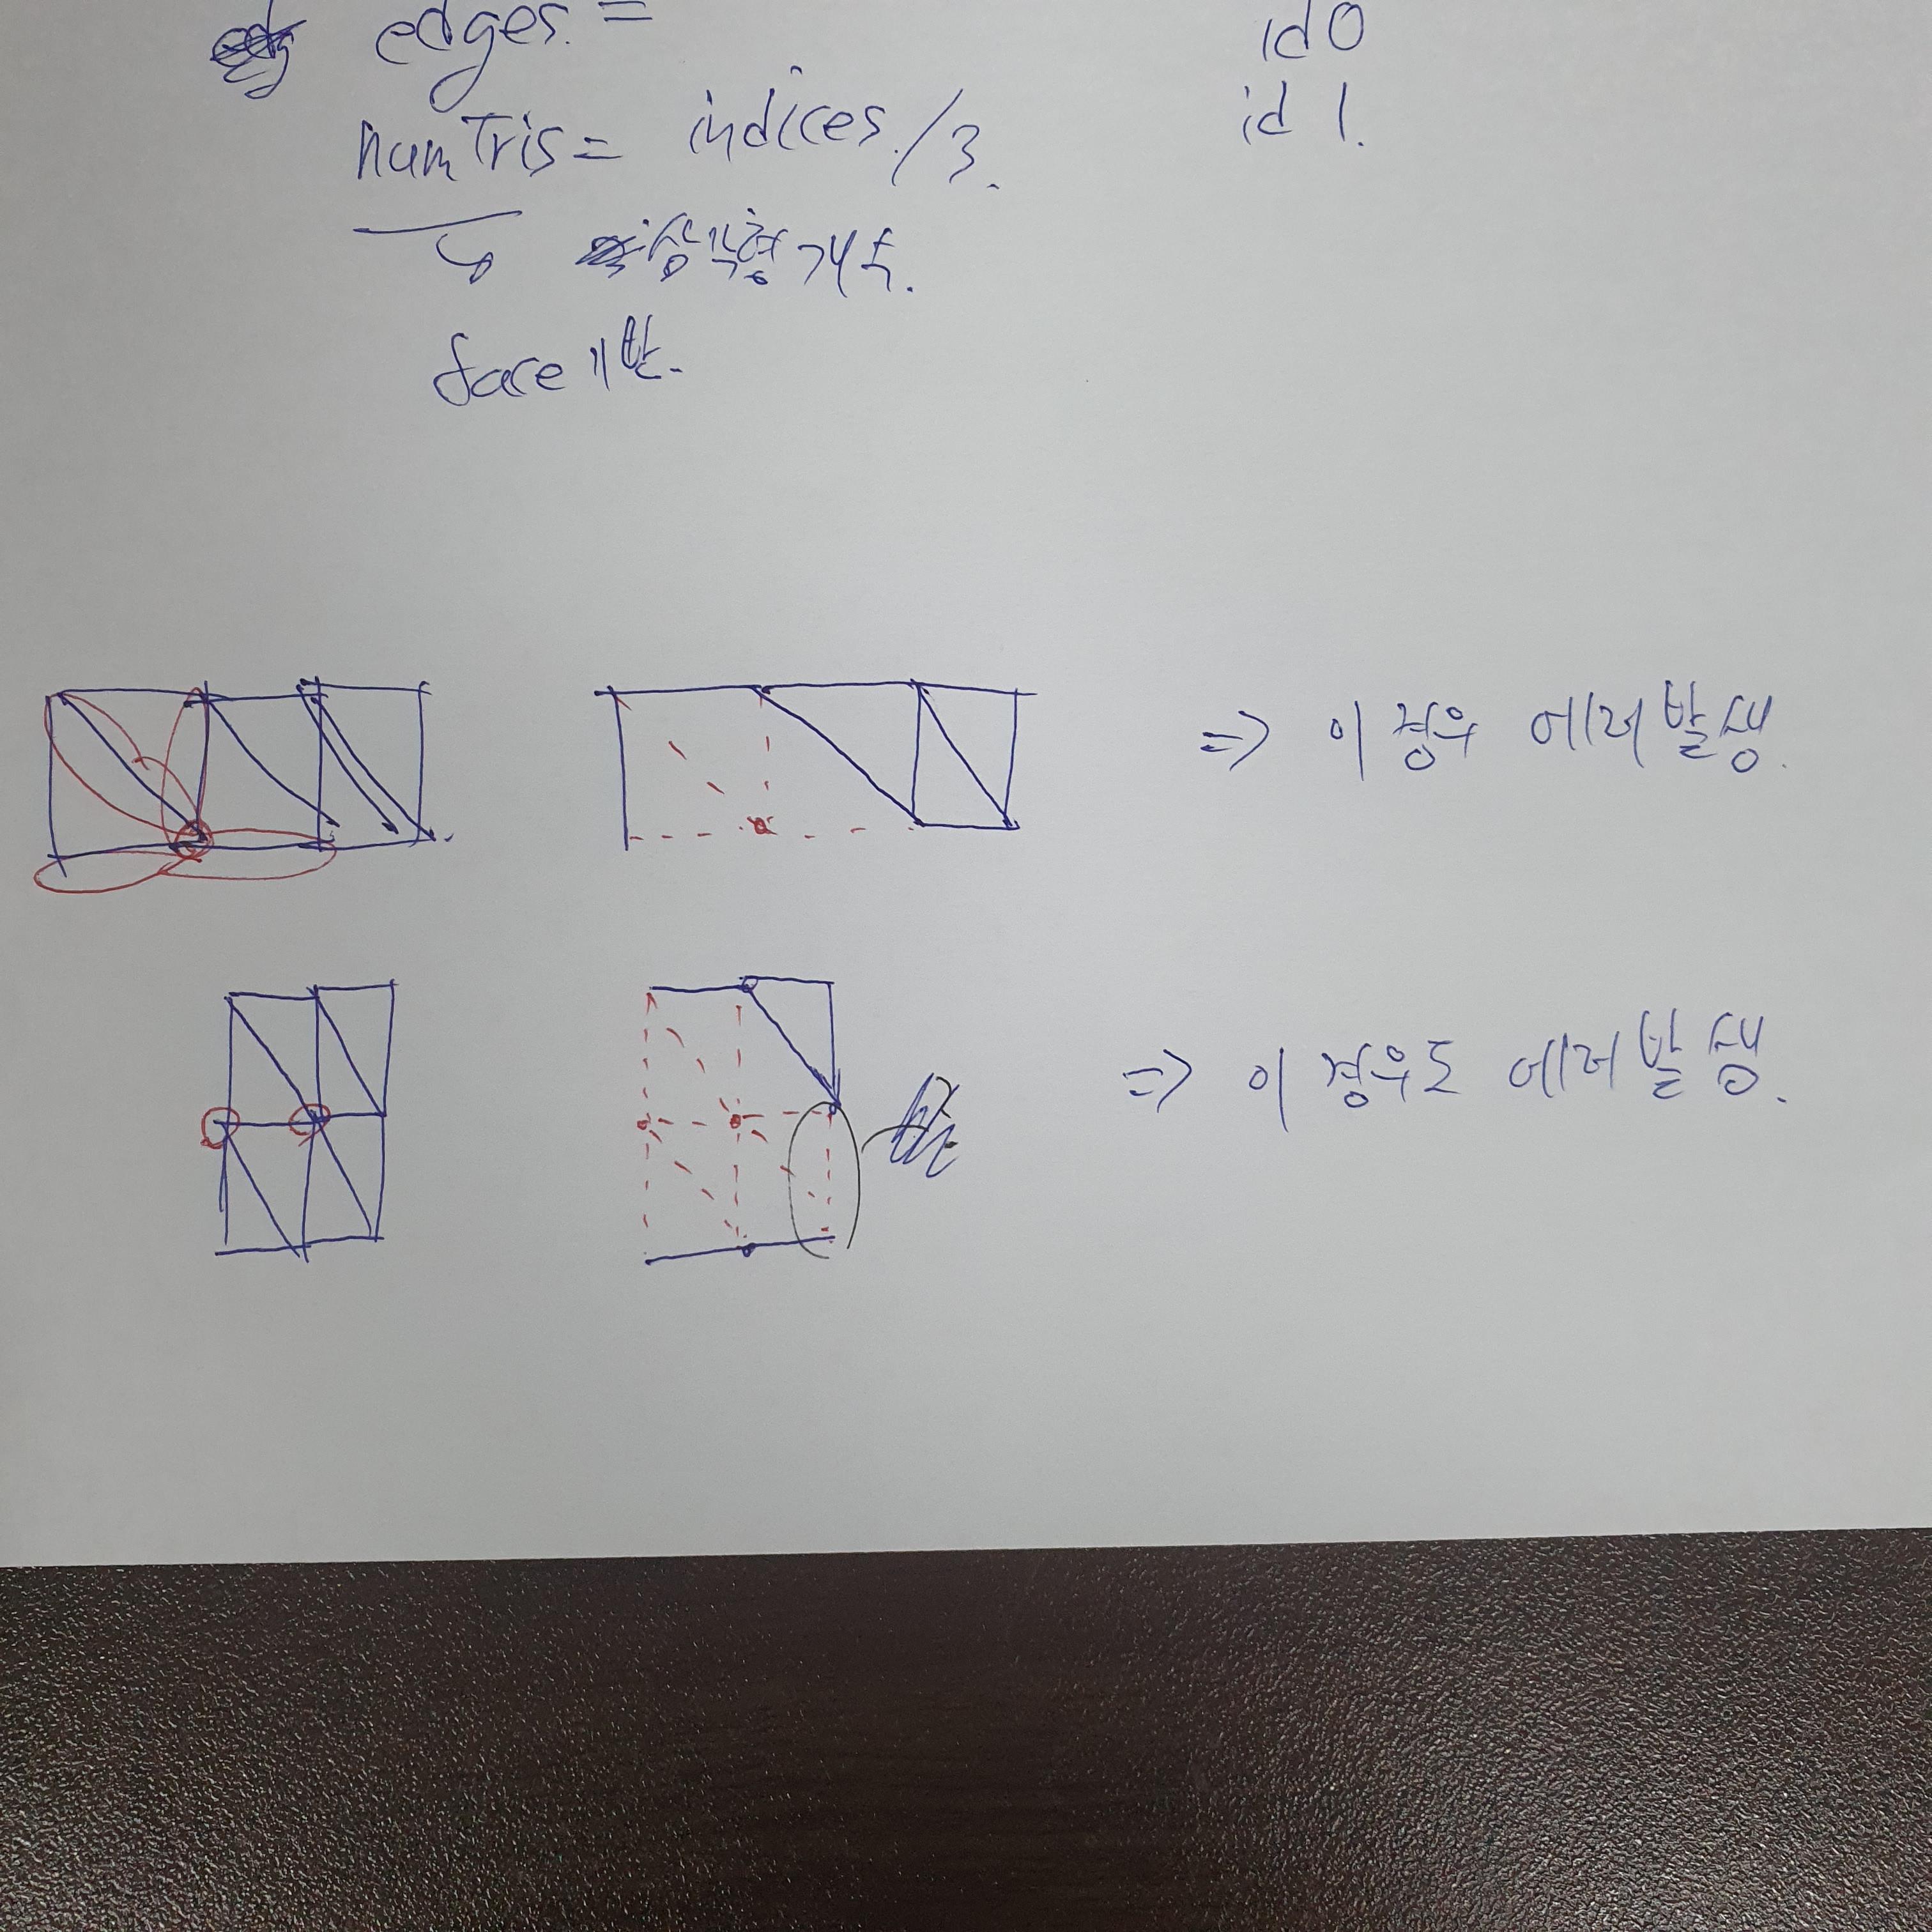 edges. =
id 0
numTris = indices./3.
id 1.
삼각형 개수.
face 기반.
=> 이 경우 에러 발생.
=> 이 경우도 에러 발생.